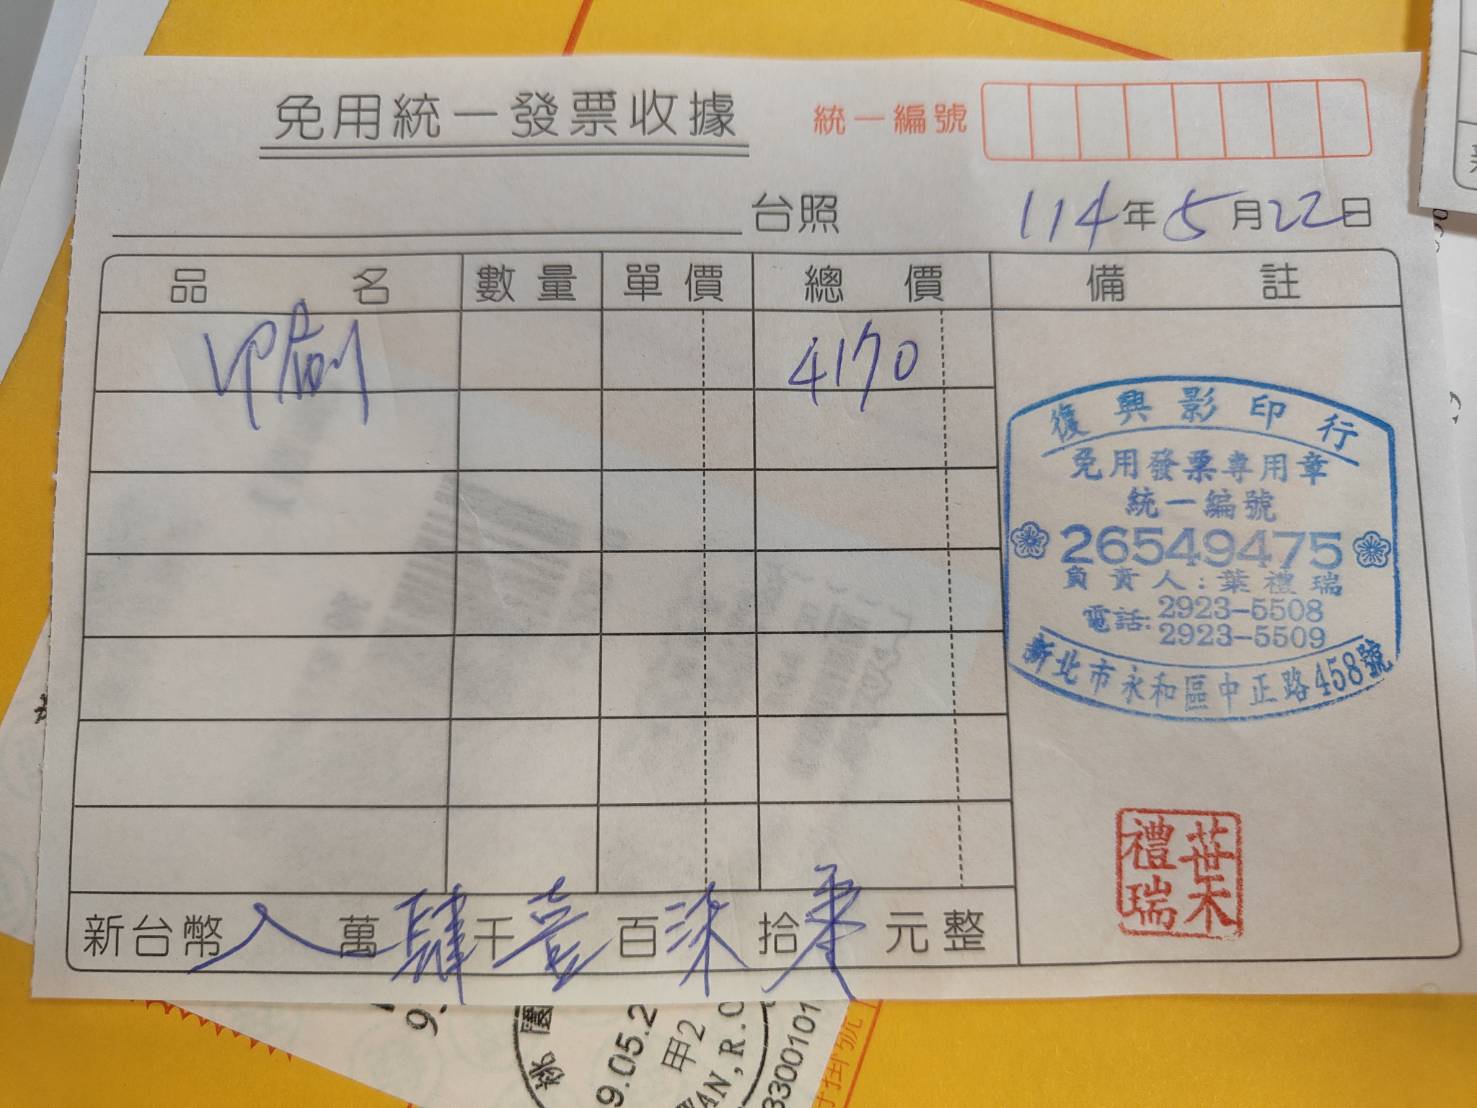 免用統一發票收據
統一編號
台照
114年5月22日
品名 數量 單價 總價 備註
印刷 4170
復興影印行
免用發票專用章
統一編號
26549475
負責人:葉禮瑞
電話:2923-5508
2923-5509
新北市永和區中正路458號
葉禮瑞
新台幣 萬肆千壹百柒拾零元整
桃園
9.05.2
甲2
WAN,R.O
3300101
掛號